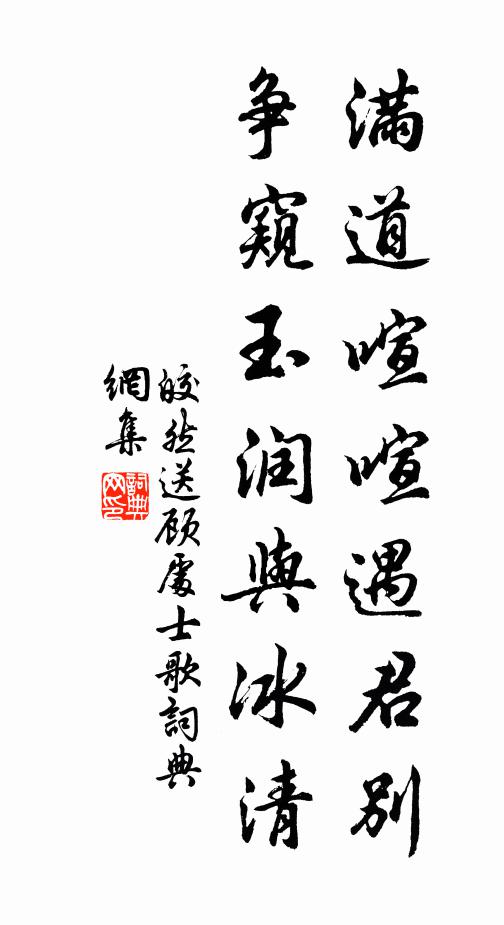 满道喧喧遇君别
争窥玉润與冰清
皎然送顾處士歌詞典
網集
詞典
网印